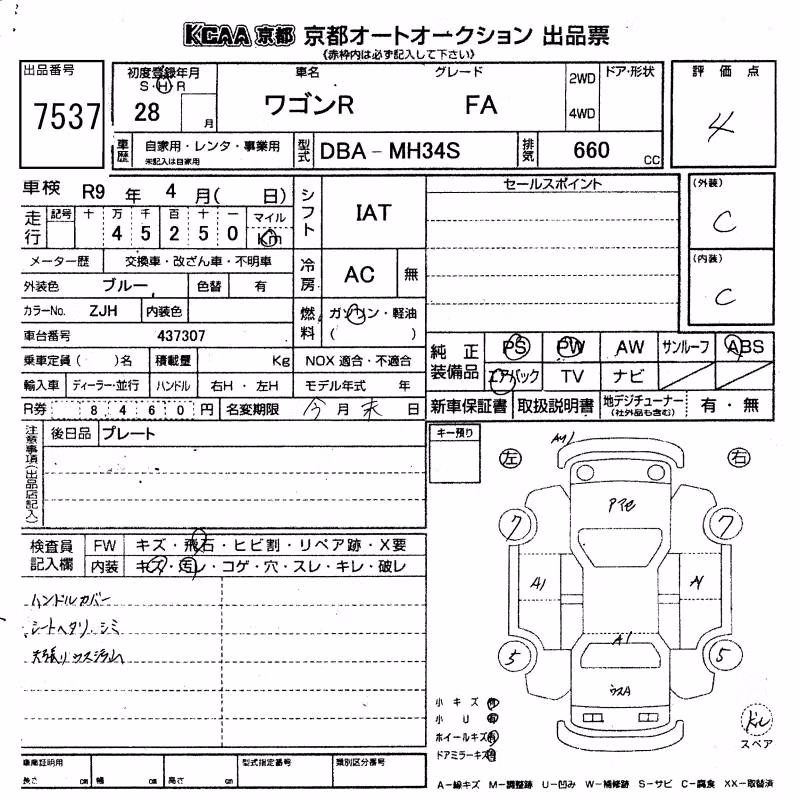 KCAA 京都 京都オートオークション 出品票
《赤枠内は必ず記入して下さい》
出品番号
7537
初度登録年月
S・H・R
28 月
車名
ワゴンR
グレード
FA
2WD
4WD
ドア・形状
評価点
4
車歴
自家用・レンタ・事業用
未記入は自家用
型式
DBA－MH34S
排気
660 CC
車検 R9 年 4 月( 日)
走行
記号 十 万 千 百 十 一 マイル
4 5 2 5 0 Km
シフト
IAT
セールスポイント
(外装)
C
(内装)
C
メーター歴 交換車・改ざん車・不明車
冷房 AC 無
外装色 ブルー 色替 有
カラーNo. ZJH 内装色
燃料 ガソリン・軽油
( )
車台番号 437307
乗車定員( )名 積載量 Kg NOX 適合・不適合
輸入車 ディーラー・並行 ハンドル 右H・左H モデル年式 年
R券 8 4 6 0 円 名変期限 今 月 末 日
純正装備品
PS PW AW サンルーフ ABS
エアバック TV ナビ
新車保証書 取扱説明書 地デジチューナー
(社外品も含む) 有・無
注意事項(出品店記入)
後日品 プレート
キー預り
左 右
検査員記入欄
FW キズ・飛石・ヒビ割・リペア跡・X要
内装 キズ・汚レ・コゲ・穴・スレ・キレ・破レ
ハンドルカバー
シートヘタリ、シミ
天張りウスジラム
7 7
A1
A1
5 5
ウスA
小キズ 有
小U 有
ホイールキズ 有
ドアミラーキズ 有
スペア
車庫証明用
長さ cm 幅 cm 高さ cm
型式指定番号
類別区分番号
A－線キズ M－調整跡 U－凹み W－補修跡 S－サビ C－腐食 XX－取替済